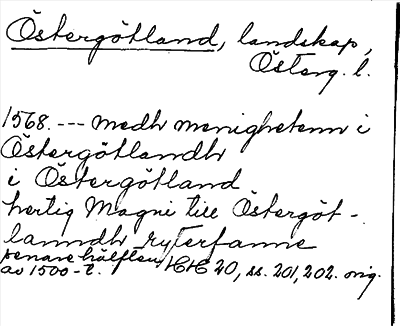 Östergötland, landskap,
Österg. l.
1568. --- medh menighetenn i
Östergötlandh
i Östergötland
hertig Magni till Östergöt-
lanndh ryterfanne
senare hälften
av 1500-t. HH 20, ss. 201, 202. orig.